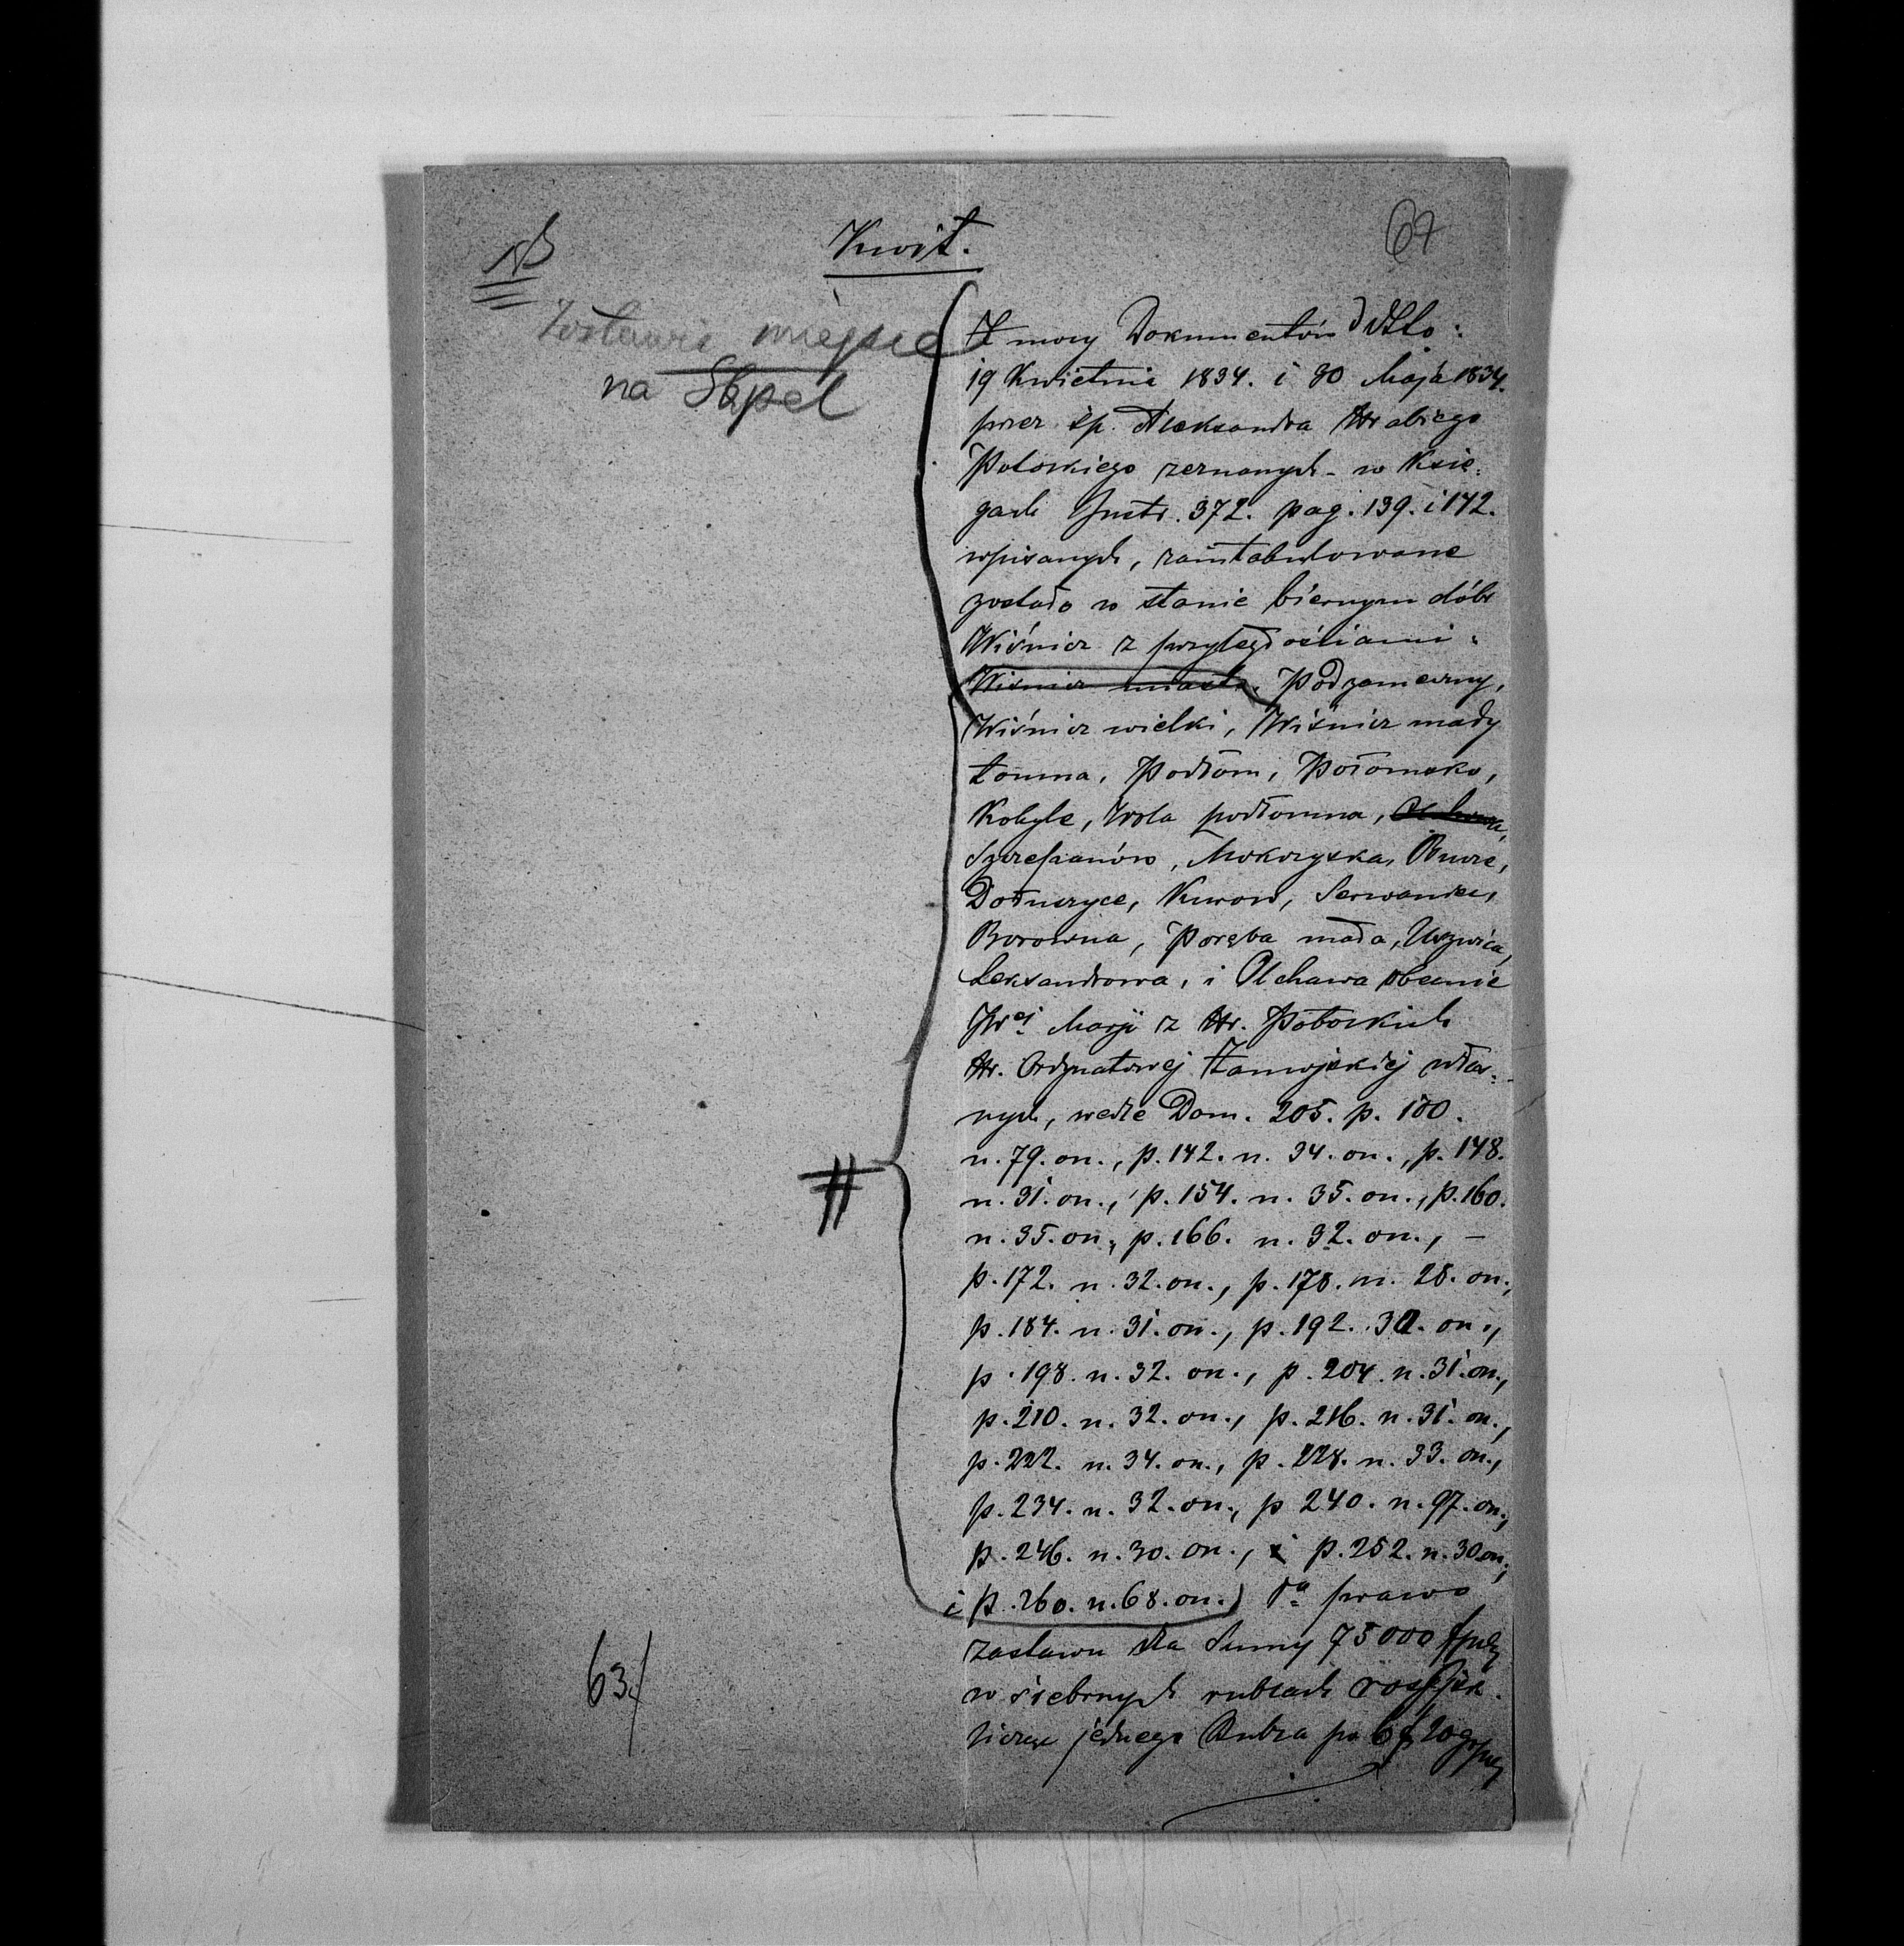 67
Kwit.
NB
Zostawić miejsce
na Stępel
Z mocy Dokumentów ddtto:
19 Kwietnia 1834. i 30 Maja 1834.
przez śp. Aleksandra Hrabiego
Potockiego zeznanych w Księ-
gach Instr. 372. pag. 139. i 142.
wpisanych, zaintabulowane
zostało w stanie biernym dóbr
Wiśnicz z przyległościami:
Wiśnicz miasto. Podzameczny,
Wiśnicz wielki, Wiśnicz mały
Łomna, Podłom, Połomska,
Kobyle, Wola podłomna, Olchawa,
Szczepanów, Mokrzyska, Bucze,
Dołuszyce, Kurow,
Borowna, Poręba mała, Uszwica,
Leksandrowa, i Olchawa obecnie
JWej Marji z Hr. Potockich
Hr. Ordynatowej Zamojskiej włas-
nych, wedle Dom. 205. p. 100.
n. 79. on., p. 142. n. 34. on., p. 148.
n. 31. on., p. 154. n. 35. on., p. 160.
n. 35. on., p. 166. n. 32. on., –
p. 172. n. 32. on., p. 178. n. 28. on.,
p. 184. n. 31. on., p. 192. 32. on.,
p. 198. n. 32. on., p. 204. n. 31. on.,
p. 210. n. 32. on., p. 216. n. 31. on.,
p. 222. n. 34. on., p. 228. n. 33. on.,
p. 234. n. 32. on., p 240. n. 97. on.,
p. 246. n. 30. on., i p. 252. n. 30 on.,
i p. 260. n. 68. on.) prawo
zastawu dla Sumy 75000 fpol
w śrebrnych rublach rossyjsk.
licząc jednego Rubla po 6 f 20 gr pol
#
63/